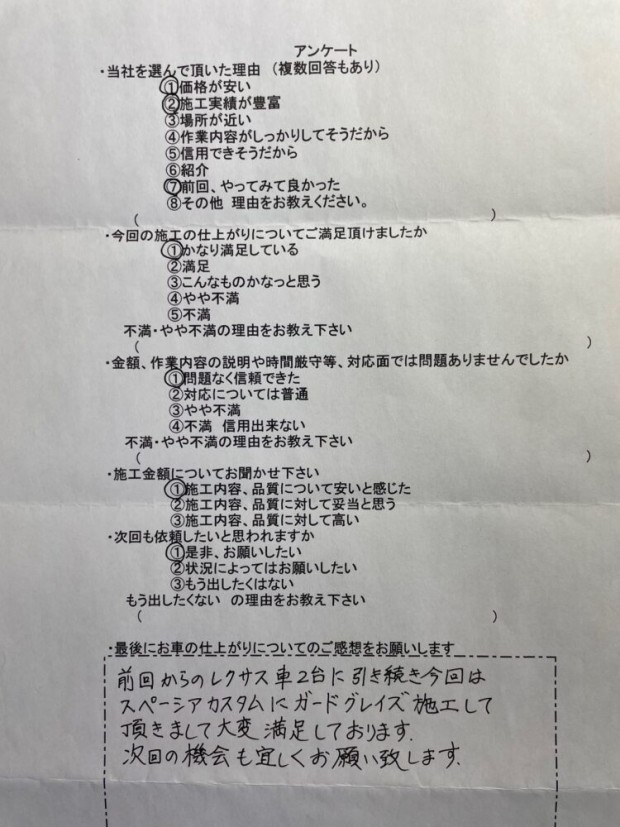 アンケート
・当社を選んで頂いた理由 (複数回答もあり)
①価格が安い
②施工実績が豊富
③場所が近い
④作業内容がしっかりしてそうだから
⑤信用できそうだから
⑥紹介
⑦前回、やってみて良かった
⑧その他 理由をお教えください。
( )
・今回の施工の仕上がりについてご満足頂けましたか
①かなり満足している
②満足
③こんなものかなっと思う
④やや不満
⑤不満
不満・やや不満の理由をお教え下さい
( )
・金額、作業内容の説明や時間厳守等、対応面では問題ありませんでしたか
①問題なく信頼できた
②対応については普通
③やや不満
④不満 信用出来ない
不満・やや不満の理由をお教え下さい
( )
・施工金額についてお聞かせ下さい
①施工内容、品質について安いと感じた
②施工内容、品質に対して妥当と思う
③施工内容、品質に対して高い
・次回も依頼したいと思われますか
①是非、お願いしたい
②状況によってはお願いしたい
③もう出したくはない
もう出したくない の理由をお教え下さい
( )
・最後にお車の仕上がりについてのご感想をお願いします
前回からのレクサス車2台に引き続き今回は
スペーシアカスタムにガードグレイズ施工して
頂きまして大変満足しております.
次回の機会も宜しくお願い致します.